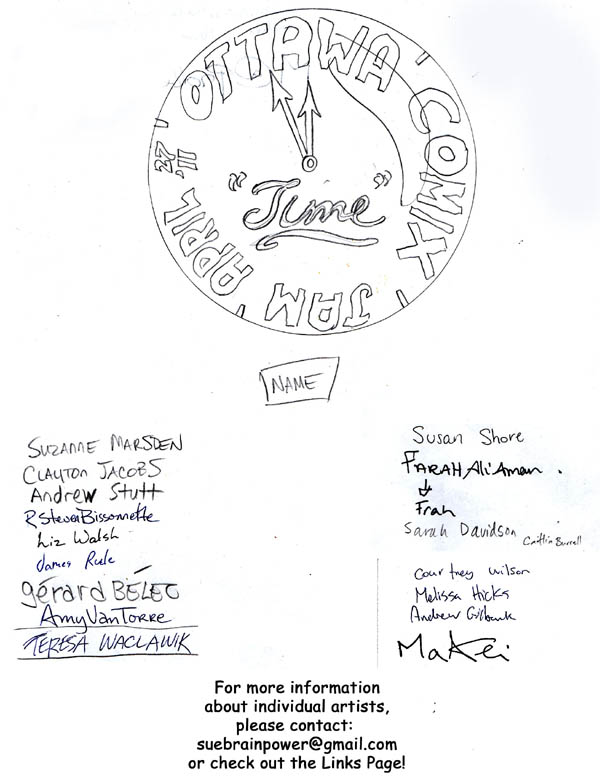 OTTAWA COMIX JAM APRIL 27 '11
"Time"
NAME
SUZANNE MARSDEN
CLAYTON JACOBS
Andrew Stutt
R Steven Bissonnette
Liz Walsh
James Rule
gérard BÉLEC
Amy Van Torre
TERESA WACLAWIK
Susan Shore
FARAH Ali Aman .
Frah
Sarah Davidson
Caitlin Burrell
Courtney Wilson
Melissa Hicks
Andrew Gilbank
Makei
For more information
about individual artists,
please contact:
suebrainpower@gmail.com
or check out the Links Page!